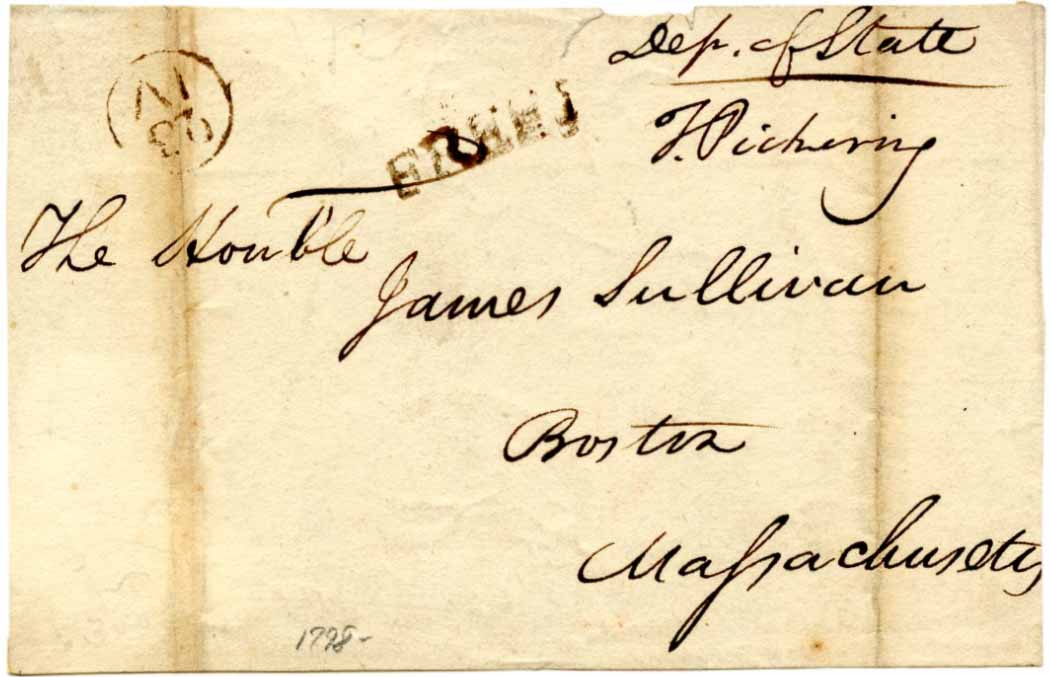 Dep. of State
T. Pickering
The Hon'ble
James Sullivan
Boston
Massachusetts
1798-